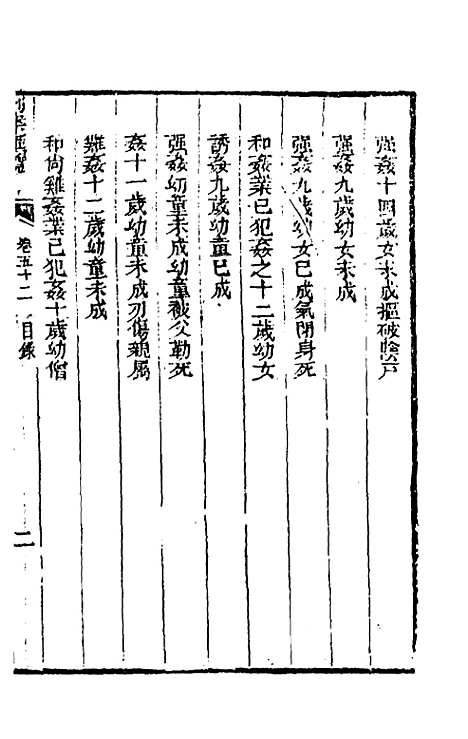 强姦十四歲女未成摳破陰戶
强姦九歲幼女未成
强姦九歲幼女已成氣閉身死
和姦業已犯姦之十二歲幼女
誘姦九歲幼童已成
强姦幼童未成幼童被父勒死
姦十一歲幼童未成刃傷親屬
雞姦十二歲幼童未成
和尚雞姦業已犯姦十歲幼僧
卷五十二 目錄 二